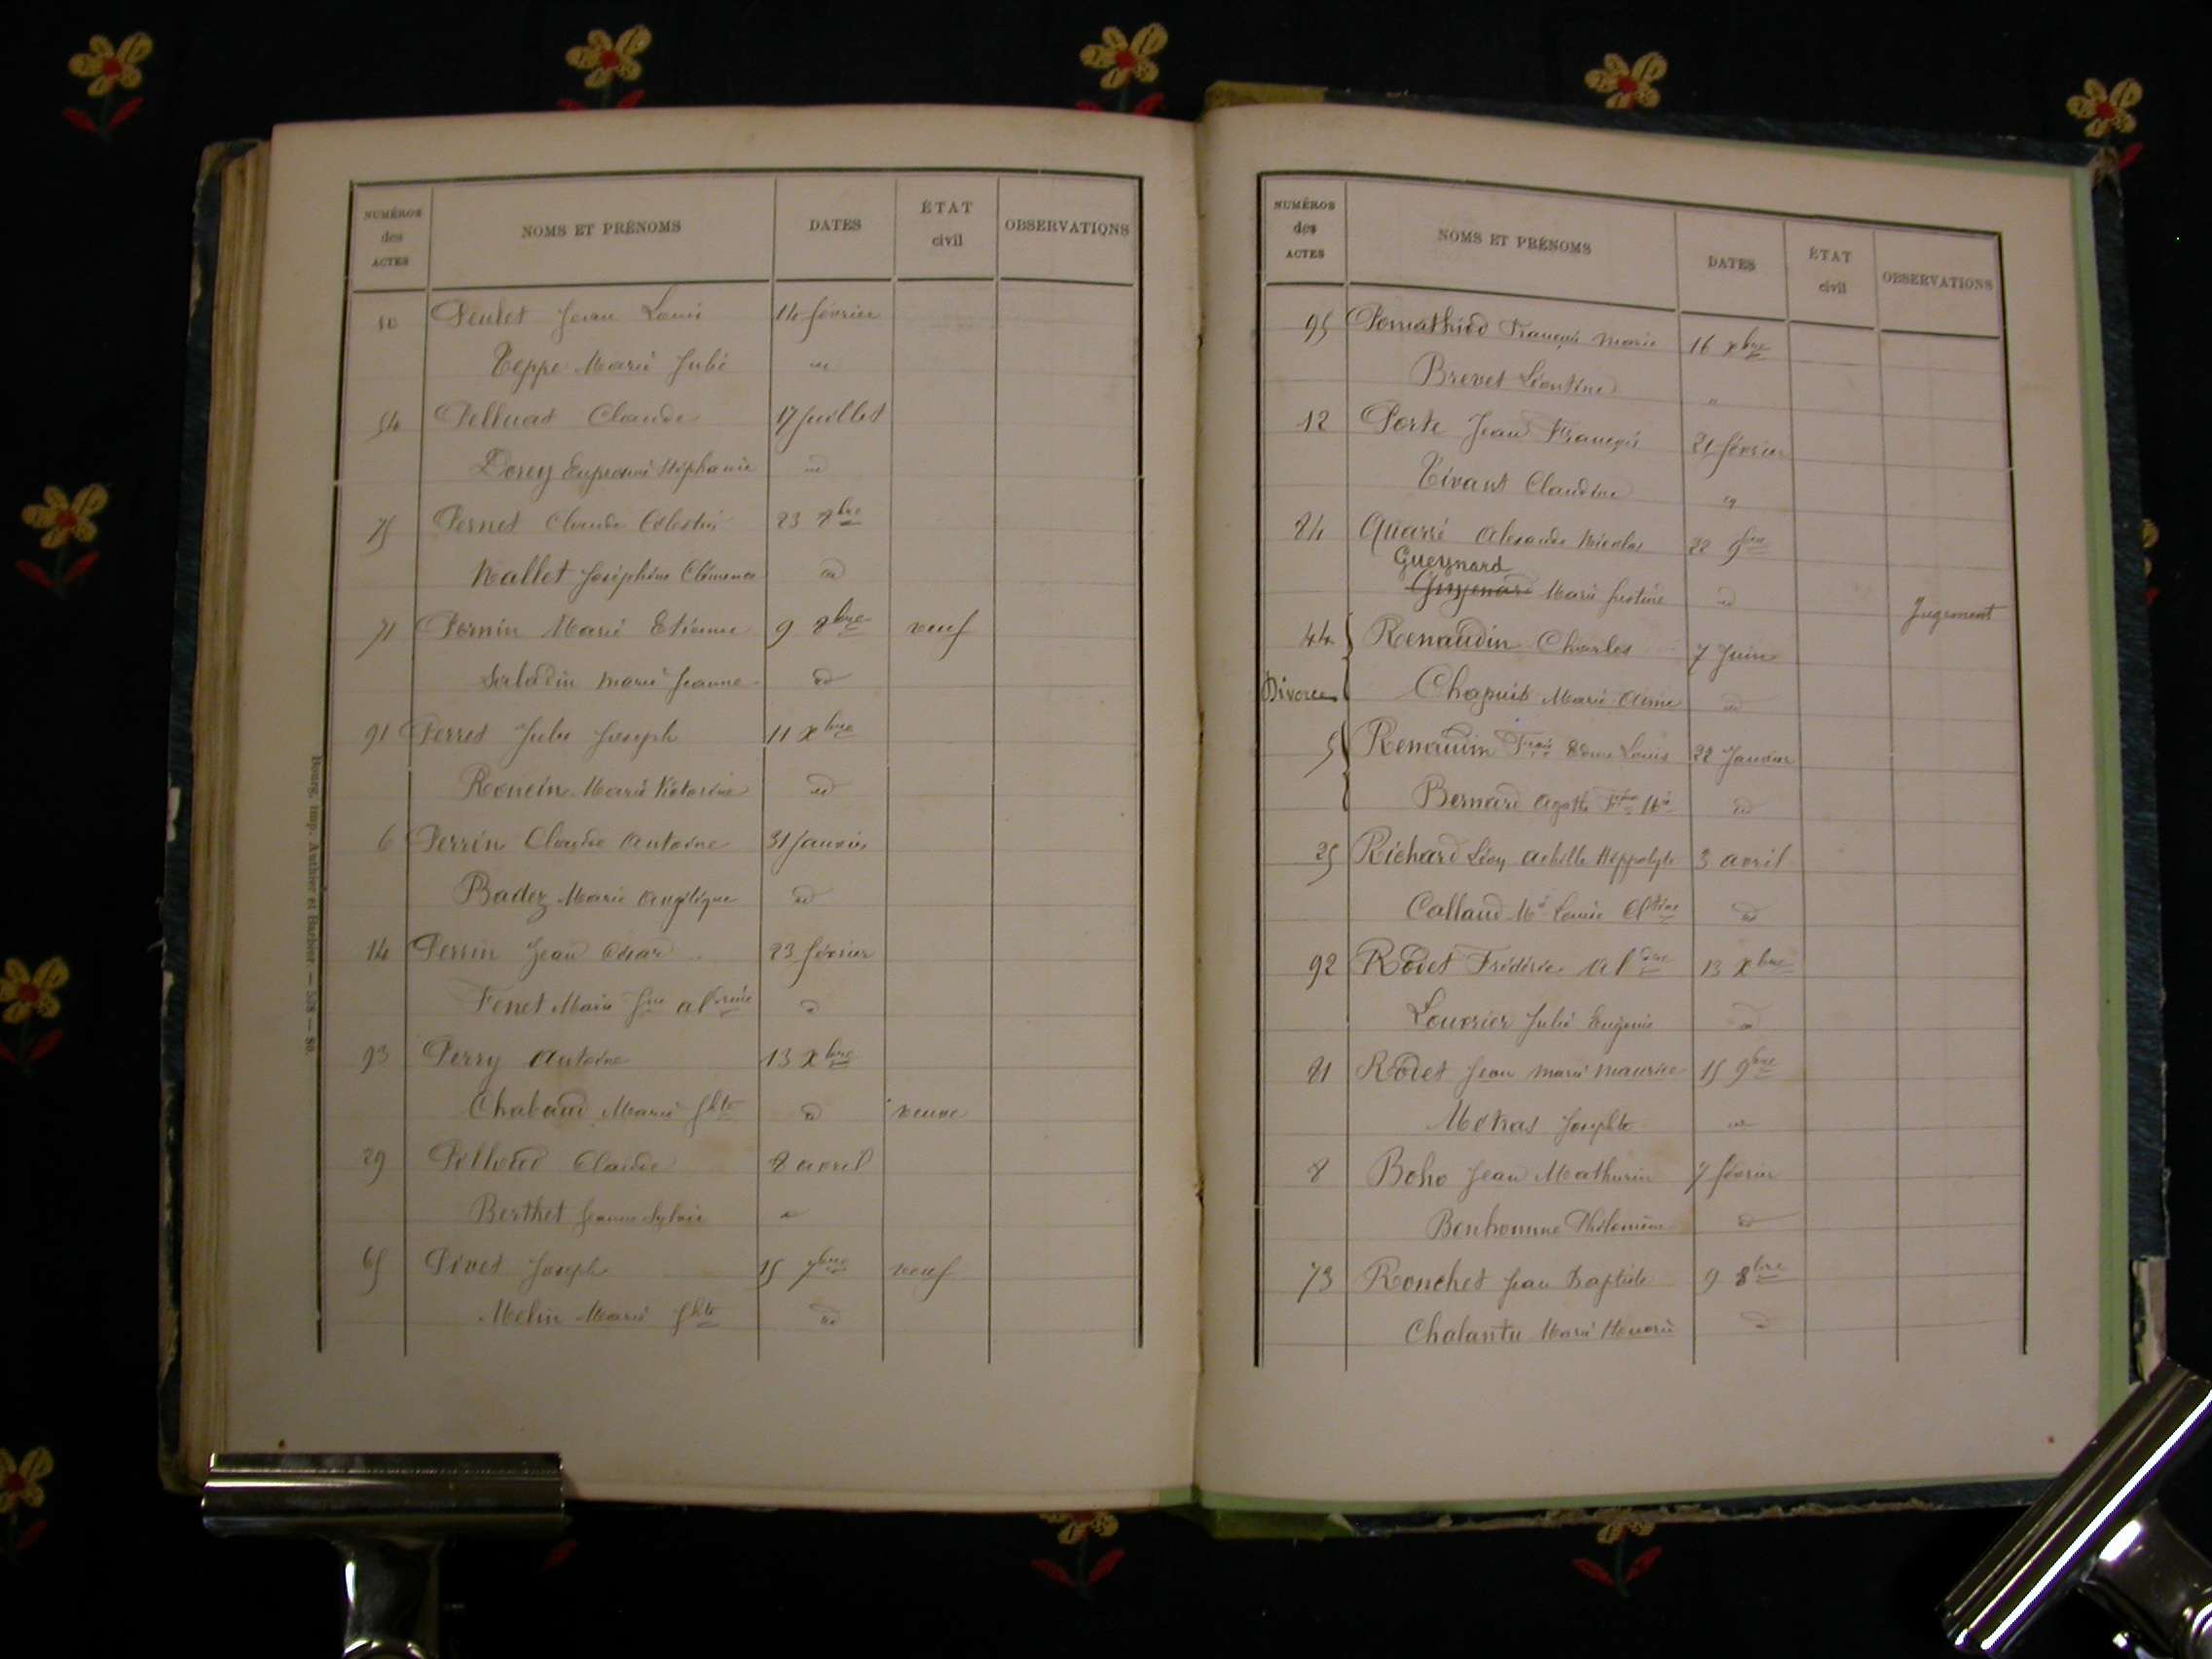 NUMÉROS des ACTES NOMS ET PRÉNOMS DATES ÉTAT civil OBSERVATIONS
10 Peulet Jean Louis 14 février
Teppe Marie Julie id
54 Pelluat Claude 17 juillet
Dorey Stéphanie id
75 Pernet Claude Célestin 23 8bre
Nallet Joséphine Clémence id
71 Pernin Marie Etienne 9 8bre veuf
Saladin Marie Jeanne id
91 Perret Jules Joseph 11 Xbre
Roncin Marie Victorine id
6 Perrin Claude Antoine 31 janvier
Badez Marie Angélique id
14 Perrin Jean César 23 février
Fenet Marie id
93 Perry Antoine 13 Xbre
Chaband Marie Jhte id veuve
29 Pelloud Claude 8 avril
Berthet Jeanne Sylvie id
65 Pivet Joseph 15 7bre veuf
Melin Marie Jhte id
Bourg, imp. Authier et Barbier. — 538 — 89.
NUMÉROS des ACTES NOMS ET PRÉNOMS DATES ÉTAT civil OBSERVATIONS
95 Pomathiod François Marie 16 Xbre
Brevet Léontine "
12 Porte Jean François 21 février
Tivant Claudine id
84 Quarré Alexandre Nicolas 22 9bre
Gueynard
Marie Justine id Jugement
44 Renaudin Charles 7 Juin
Divorce Chapuis Marie Aimé id
5 Renaudin Fçois Edme Louis 22 Janvier
Bernard Agathe id
25 Richard Léon Achille Hippolyte 3 avril
Calland Mie Louise id
92 Rodet Frédéric 13 Xbre
Louvrier Julie Eugénie id
81 Rodet Jean Marie Maurice 15 9bre
Métras Josephte id
8 Boho Jean Mathurin 7 février
Bonhomme Philomène id
73 Ronchet Jean Baptiste 9 8bre
Chalantu Marie Honorie id